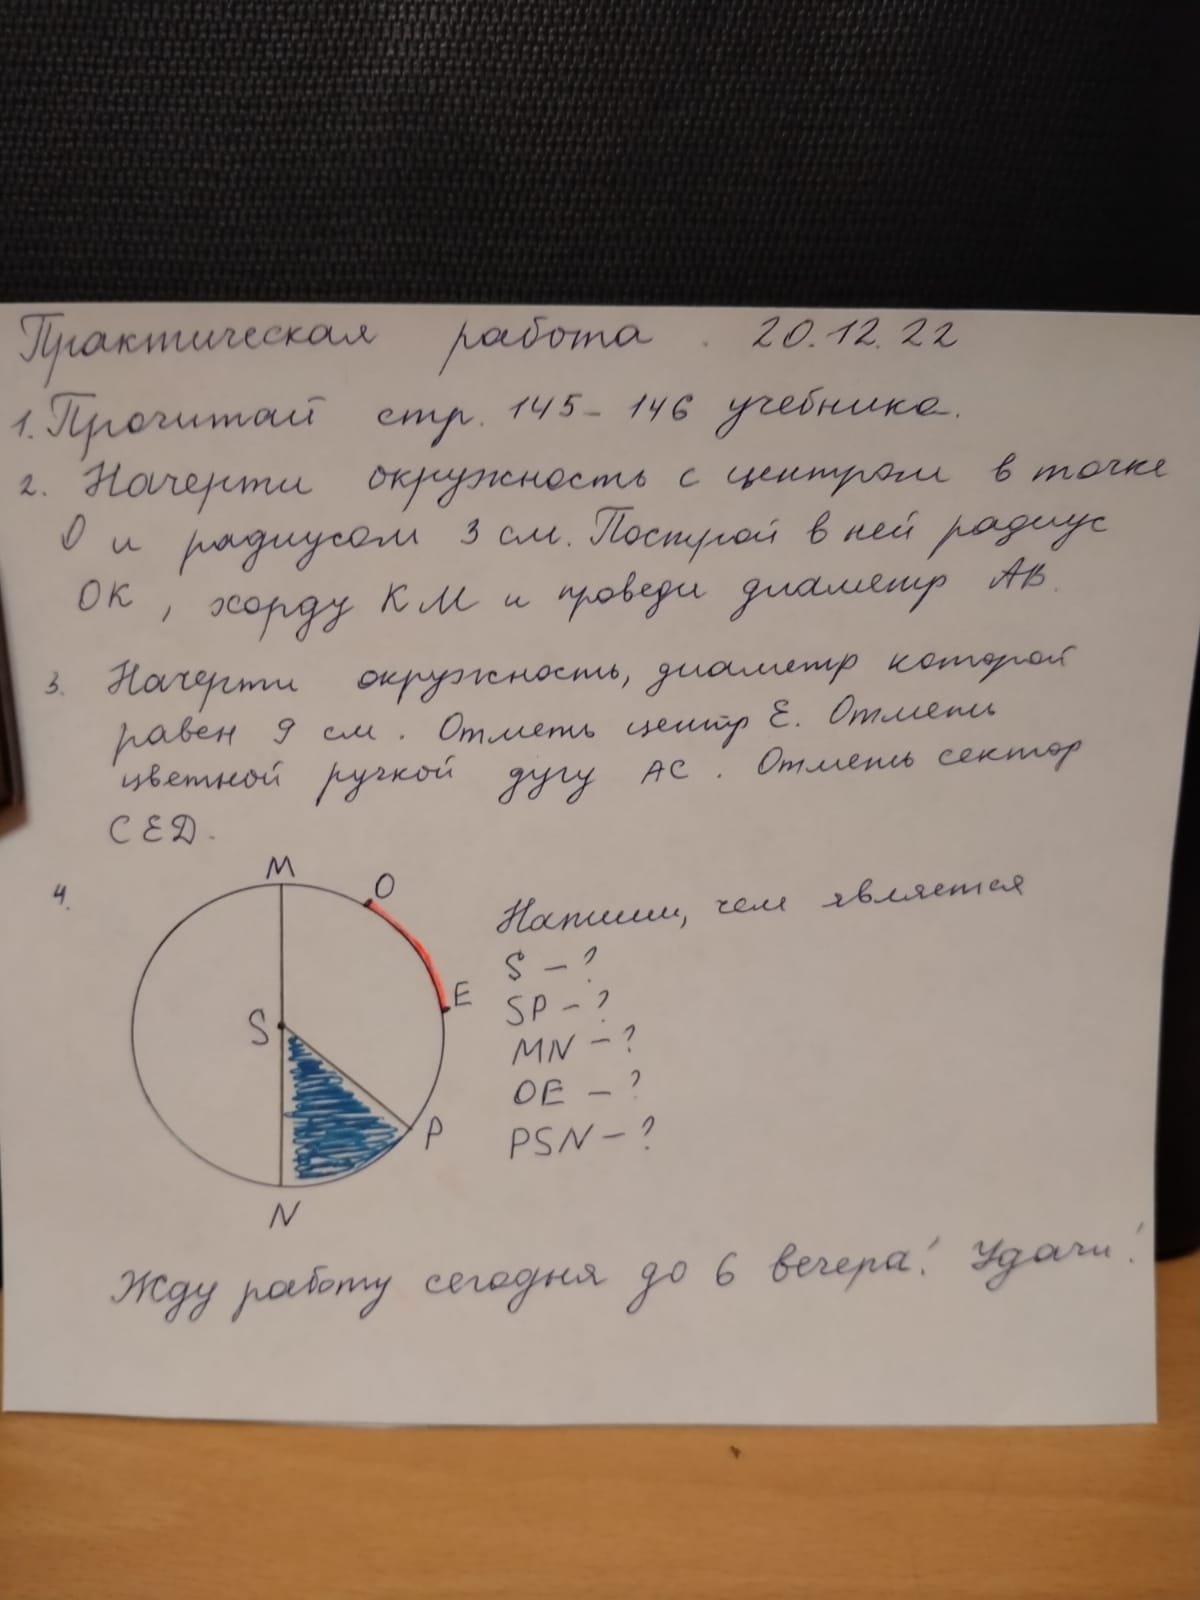 Практическая работа. 20.12.22
1. Прочитай стр. 145-146 учебника.
2. Начерти окружность с центром в точке
О и радиусом 3 см. Построй в ней радиус
ОК, хорду КМ и проведи диаметр АВ.
3. Начерти окружность, диаметр которой
равен 9 см. Отметь центр Е. Отметь
цветной ручкой дугу АС. Отметь сектор
СЕД.
4.
M
O
E
S
P
N
Напиши, чем является
S - ?
SP - ?
MN - ?
OE - ?
PSN - ?
Жду работу сегодня до 6 вечера! Удачи!